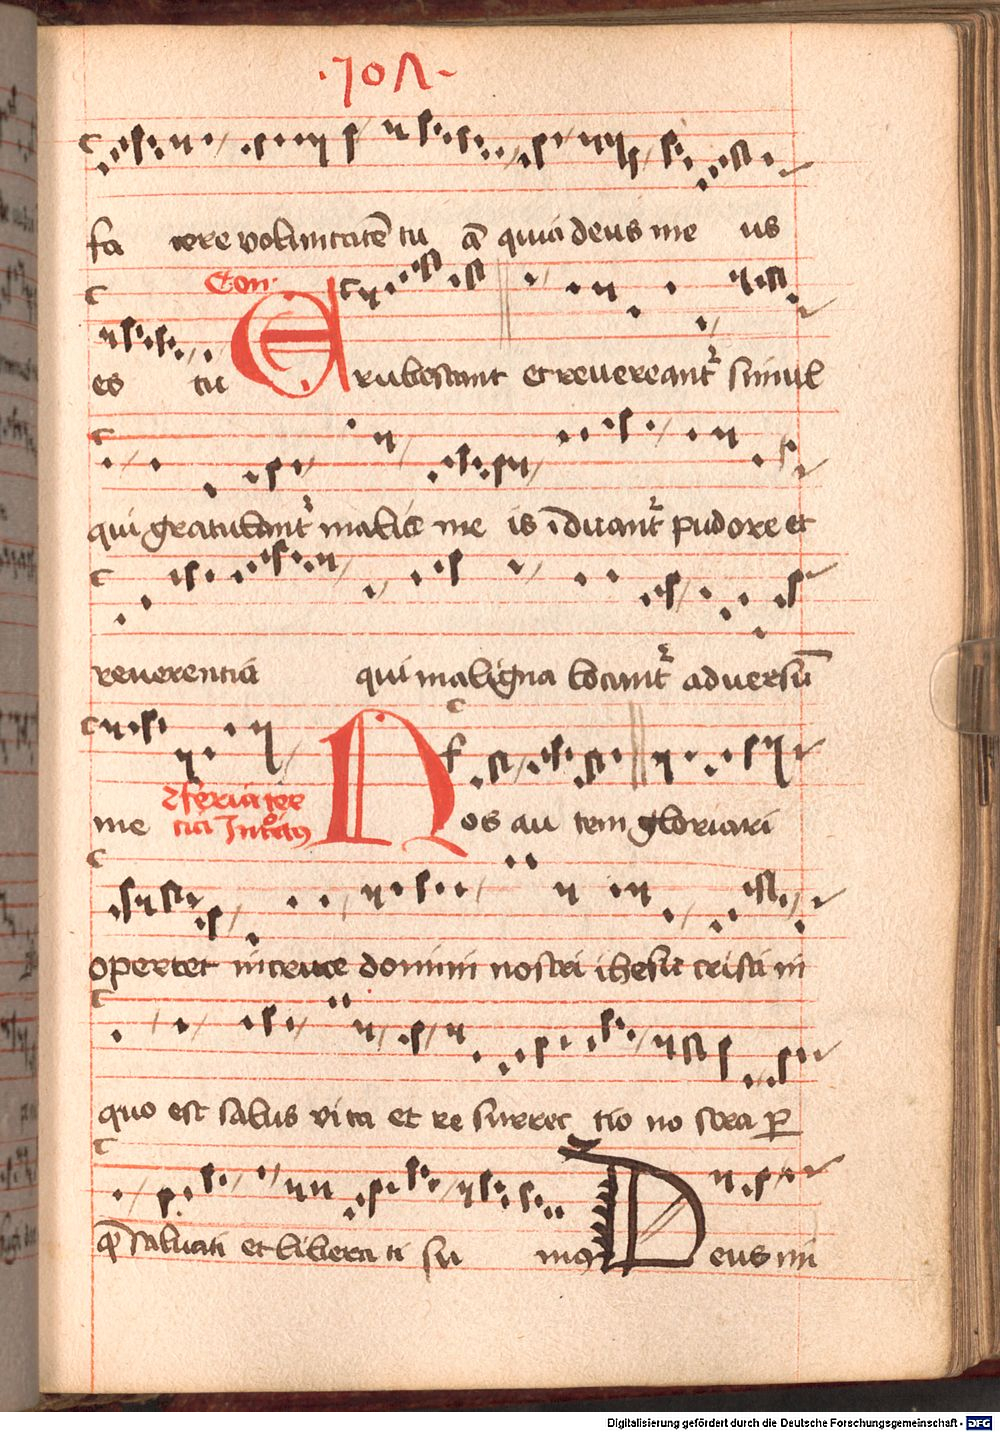 ·101·
fa cere voluntatē tu ā quia deus me us
Con·
es tu Erubescant et reuereant᷑ simul
qui gratulant᷑ malis me is īduant᷑ pudore et
reuerentia qui maligna locunt᷑ aduersū
me Nos au tem gloriari
feria ter
cia
opertet in cruce domini nostri ihesu cristi in
quo est salus vita et re surrec tio no stra ꝑ
saluati et libera ti su mꝰ Deus mi
Digitalisierung gefördert durch die Deutsche Forschungsgemeinschaft - DFG